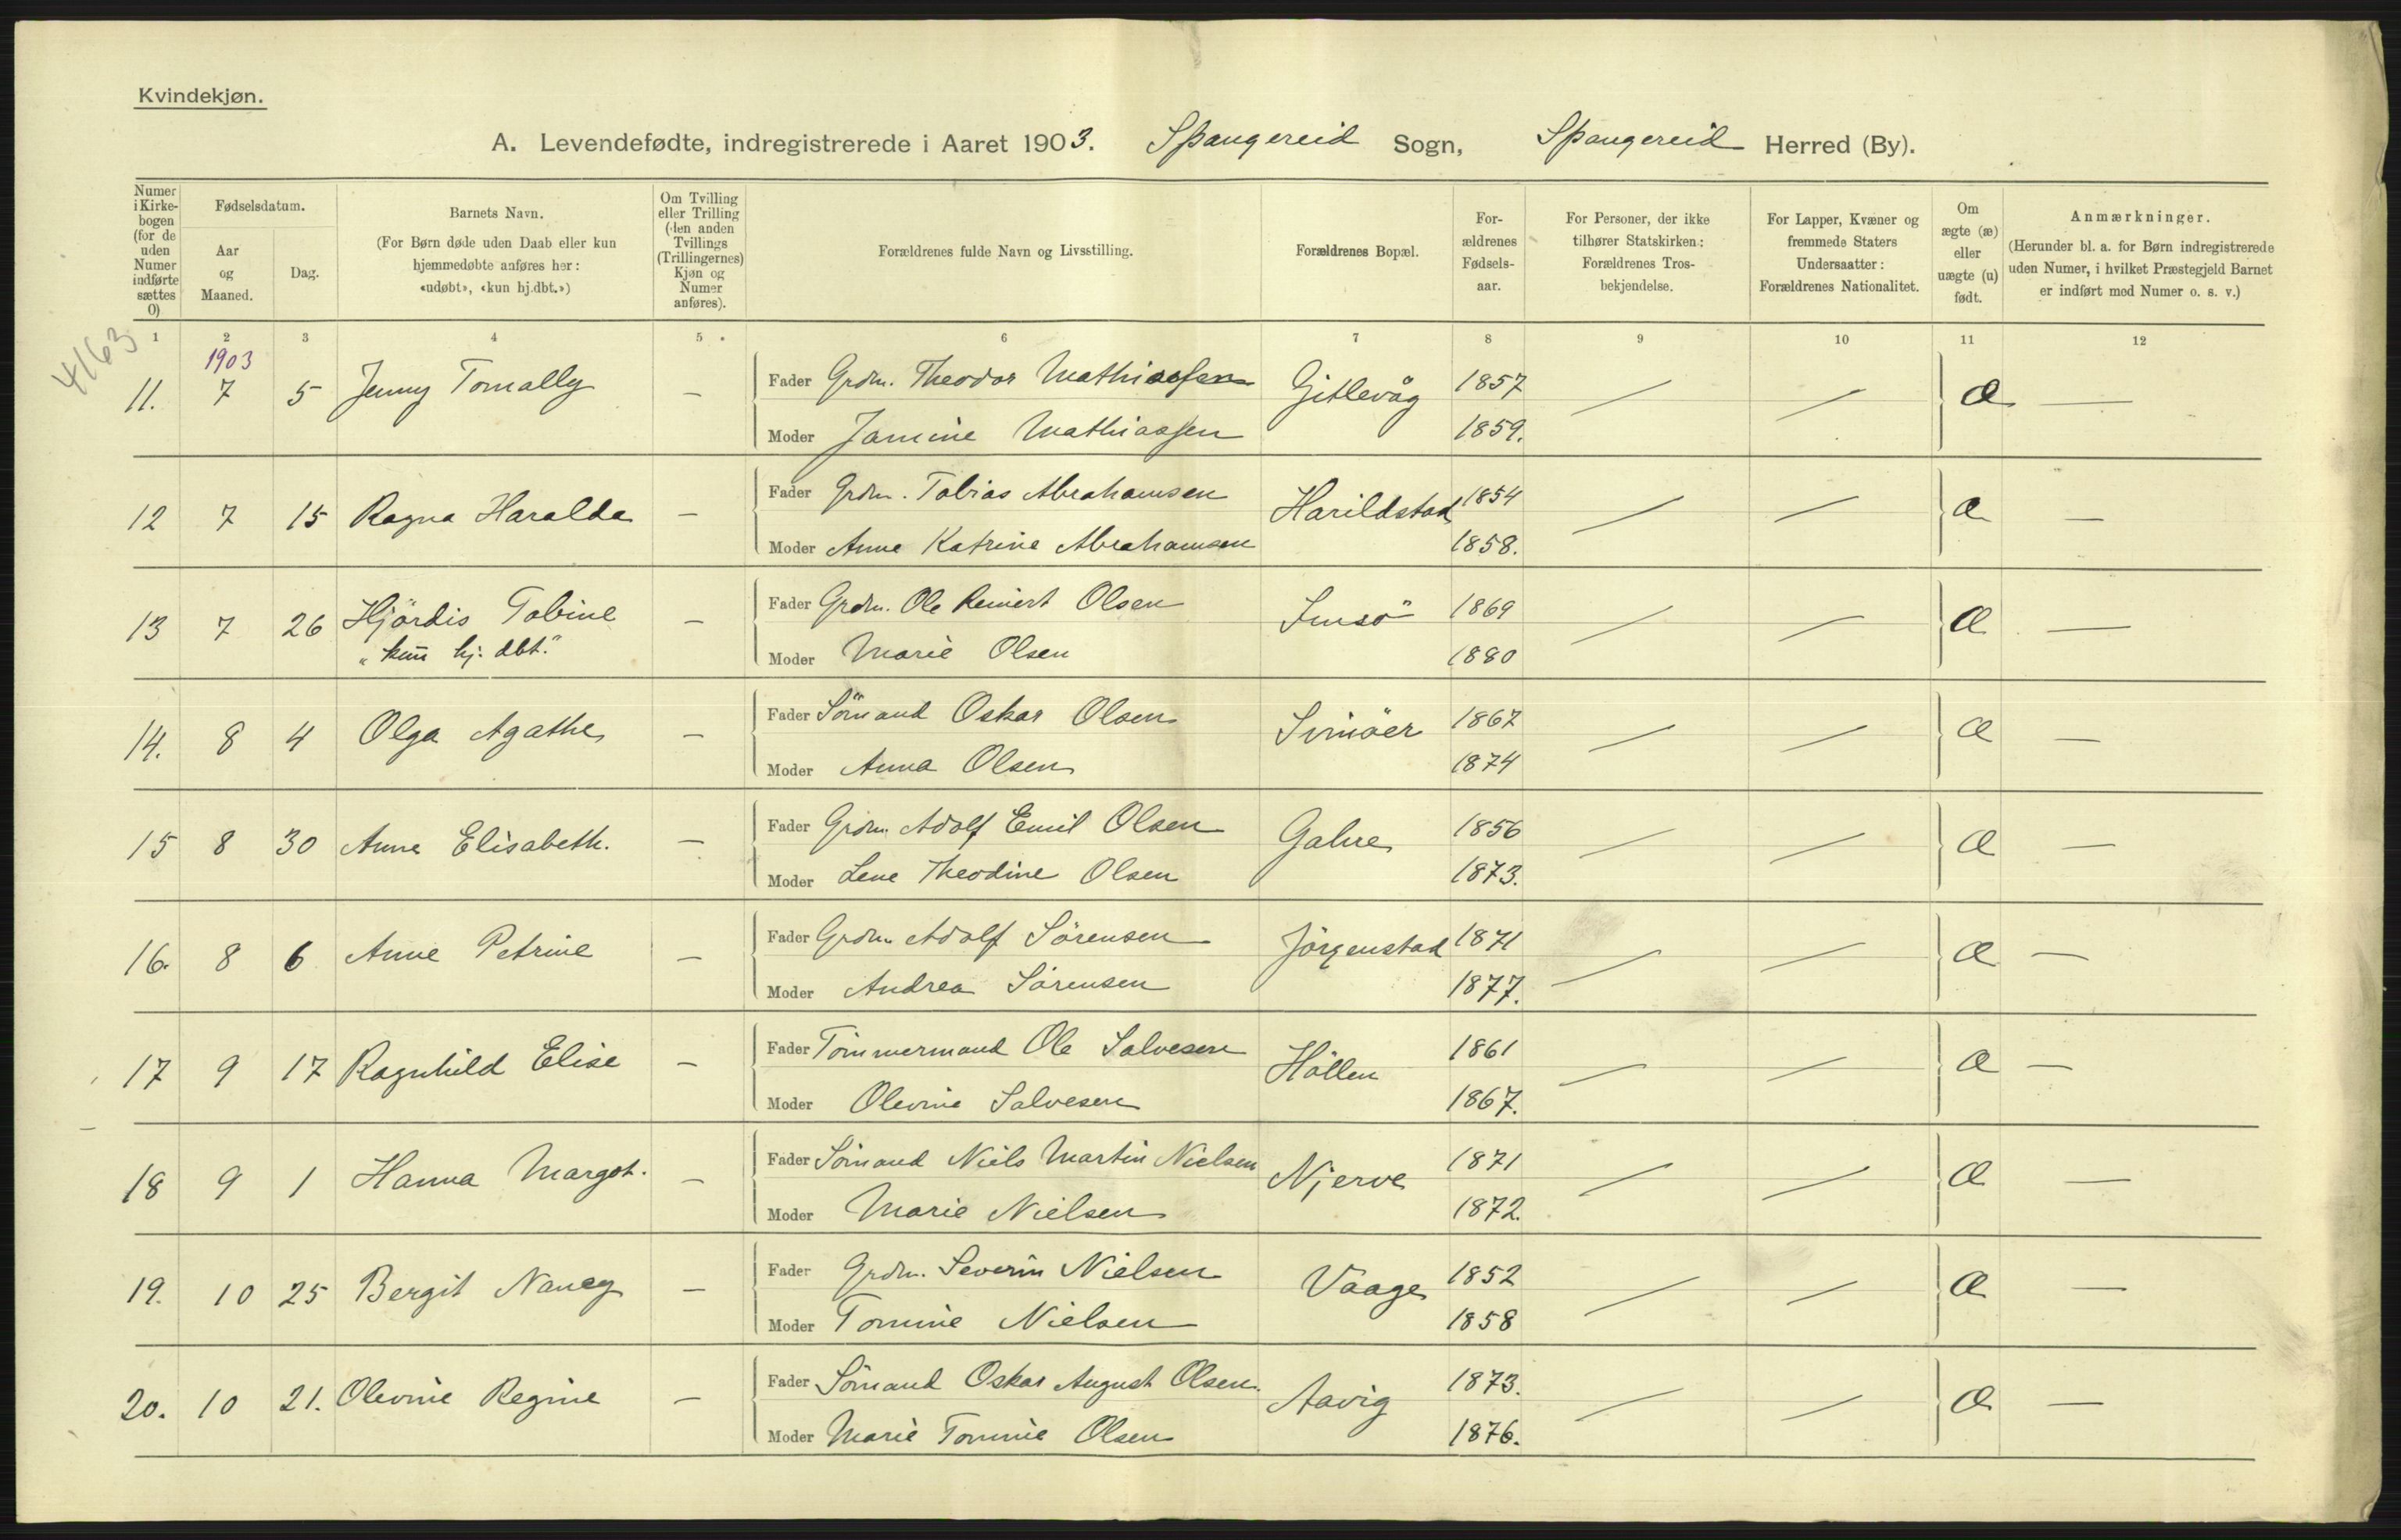 Kvindekjøn.
A. Levendefødte, indregistrerede i Aaret 1903. Spangereid Sogn, Spangereid Herred (By).
Numer i Kirke-bogen (for de uden Numer indførte sættes 0)
Fødselsdatum.
Aar og Maaned.
Dag.
Barnets Navn.
(For Børn døde uden Daab eller kun hjemmedøbte anføres her: «udøbt», «kun hj.dbt.»)
Om Tvilling eller Trilling (den anden Tvillings (Trillingernes) Kjøn og Numer anføres).
Forældrenes fulde Navn og Livsstilling.
Forældrenes Bopæl.
For-ældrenes Fødsels-aar.
For Personer, der ikke tilhører Statskirken: Forældrenes Tros-bekjendelse.
For Lapper, Kvæner og fremmede Staters Undersaatter: Forældrenes Nationalitet.
Om ægte (æ) eller uægte (u) født.
Anmærkninger.
(Herunder bl. a. for Børn indregistrerede uden Numer, i hvilket Præstegjeld Barnet er indført med Numer o. s. v.)
1 2 3 4 5 6 7 8 9 10 11 12
4163
1903
11. 7 5 Jenny Tomally — Fader Grdm. Theodor Mathiassen Gitlevåg 1857 — — æ —
Moder Jamine Mathiassen 1859.
12 7 15 Ragna Haralda — Fader Grdm. Tobias Abrahamsen Harildstad 1854 — — æ —
Moder Anne Katrine Abrahamsen 1858.
13 7 26 Hjördis Tobine — Fader Grdm. Ole Reinert Olsen Imsö 1869 — — æ —
"kun hj. dbt." Moder Marie Olsen 1880
14. 8 4 Olga Agathe — Fader Sömand Oskar Olsen Svinöer 1867 — — æ —
Moder Anna Olsen 1874
15 8 30 Anna Elisabeth. — Fader Grdm. Adolf Emil Olsen Gahre 1856 — — æ —
Moder Lene Theodine Olsen 1873.
16. 8 6 Anne Petrine — Fader Grdm. Adolf Sörensen Jörgenstad 1871 — — æ —
Moder Andrea Sörensen 1877.
17 9 17 Ragnhild Elise — Fader Tömmermand Ole Salvesen Höllen 1861 — — æ —
Moder Olevine Salvesen 1867.
18 9 1 Hanna Margot. — Fader Sömand Niels Martin Nielsen Njerve 1871 — — æ —
Moder Marie Nielsen 1872.
19. 10 25 Bergit Nancy — Fader Grdm. Severin Nielsen Vaage 1852 — — æ —
Moder Tomine Nielsen 1858
20. 10 21. Olevine Regine — Fader Sömand Oskar August Olsen. Aavig 1873. — — æ —
Moder Marie Tomine Olsen 1876.